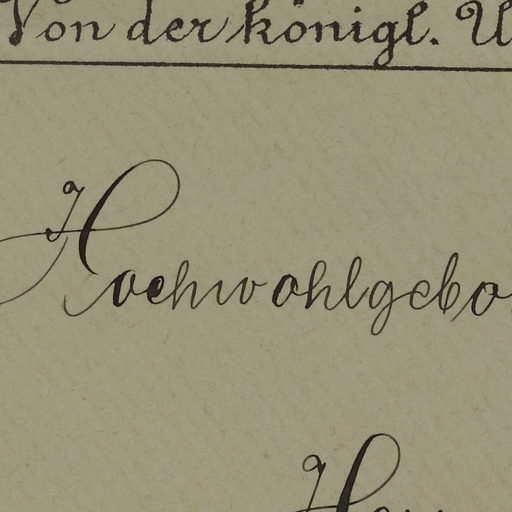 Von der königl. U
Hochwohlgebo
He